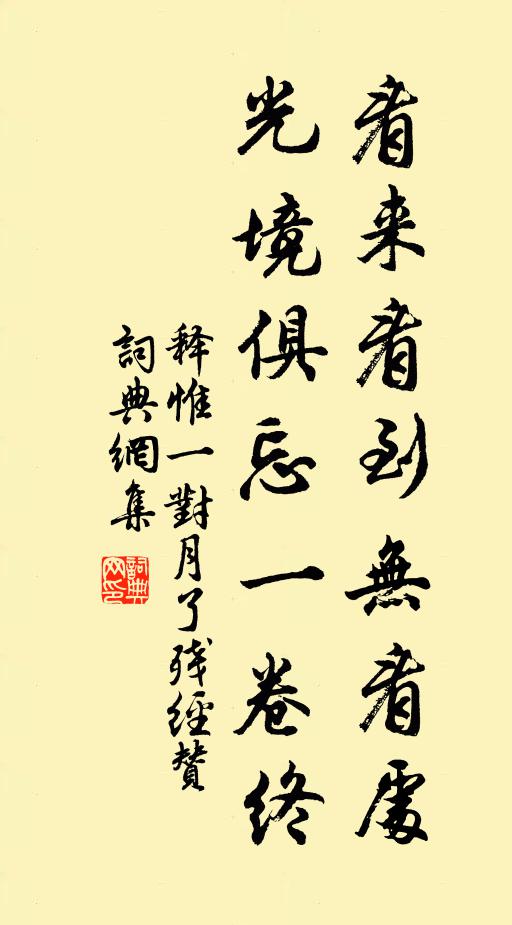 看来看到無看處
光境俱忘一卷終
释惟一對月了残經賛
詞典網集
詞典网印